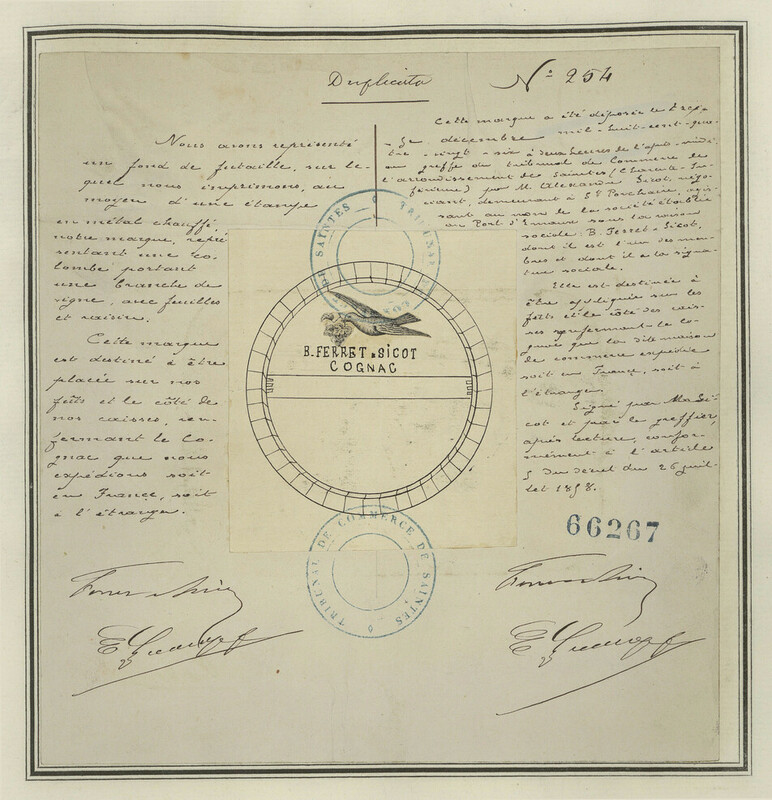 Duplicata
Nº 254
Nous avons représenté
un fond de futaille, sur le-
quel nous imprimons, au
moyen d'une étampe
en métal chauffé,
notre marque, repré
sentant une co-
lombe portant
une branche de
vigne, avec feuilles
et raisin.
Cette marque
est destinée à être
placée sur nos
fûts et le côté de
nos caisses, ren-
fermant le Co-
gnac que nous
expédions soit
en France, soit
à l'étranger.
B. FERRET & SICOT
COGNAC
Cette marque a été déposée le trei-
ze décembre mil-huit-cent-qua-
tre-vingt-six à deux heures de l'après-midi
au greffe du tribunal de Commerce de
l'arrondissement de Saintes (Charente-In-
férieure) par M. Alexandre Sicot, négo-
ciant, demeurant à St Porchaire, agis-
sant au nom de la société établie
au Port d'Envaux sous la raison
sociale: B. Ferret & Sicot,
dont il est l'un des mem-
bres et dont il a la signa-
ture sociale.
Elle est destinée à
être appliquée sur les
fûts et le côté des cais-
ses renfermant le co-
gnac que la dite maison
de commerce expédie
soit en France, soit à
l'étranger.
Signé par M. Si-
cot et par le greffier,
après lecture, confor-
mément à l'article
5 du décret du 26 juil-
let 1858.
66267
TRIBUNAL DE COMMERCE DE SAINTES
TRIBUNAL DE COMMERCE DE SAINTES